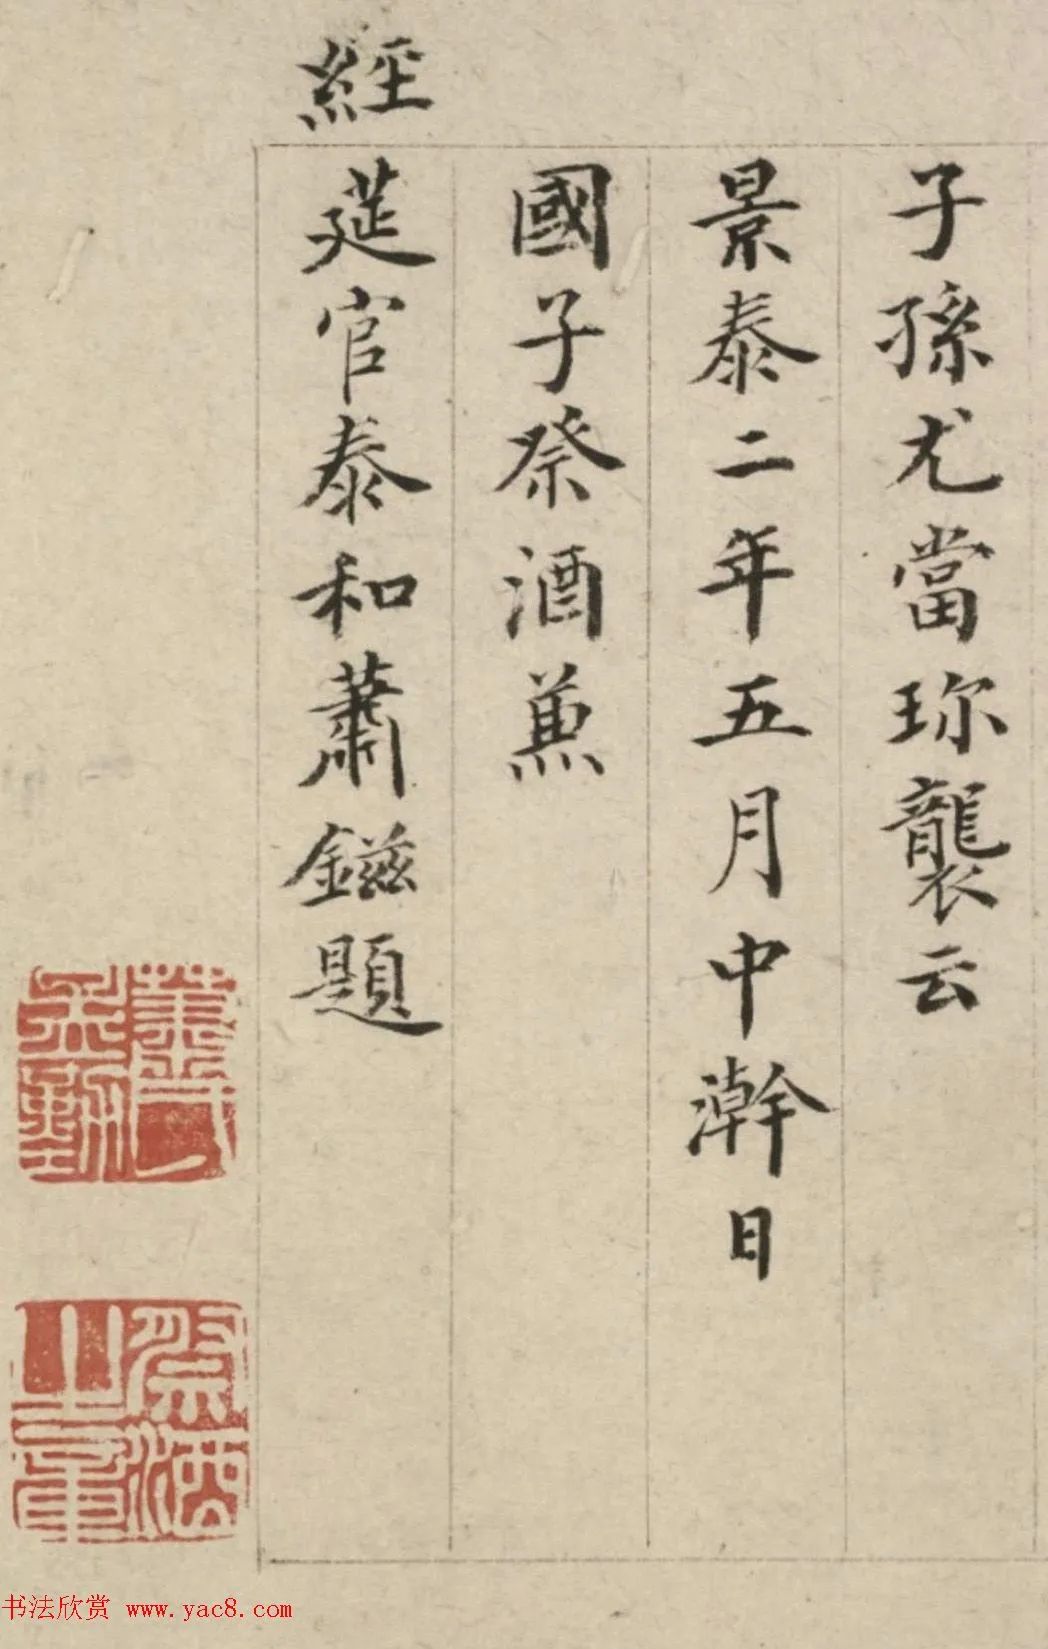 子孫尤當珎襲云
景泰二年五月中澣日
國子祭酒兼
經筵官泰和蕭鎡題
祭酒之章
书法欣赏 www.yac8.com